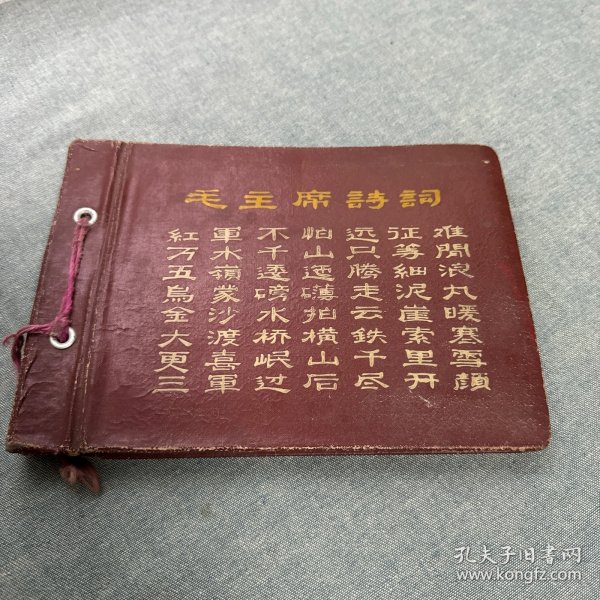 毛主席詩詞
紅軍不怕远征难
万水千山只等閒
五嶺逶迤腾細浪
烏蒙磅礴走泥丸
金沙水拍云崖暖
大渡桥横鉄索寒
更喜岷山千里雪
三軍过后尽开顏
孔夫子旧书网
www.kongfz.com